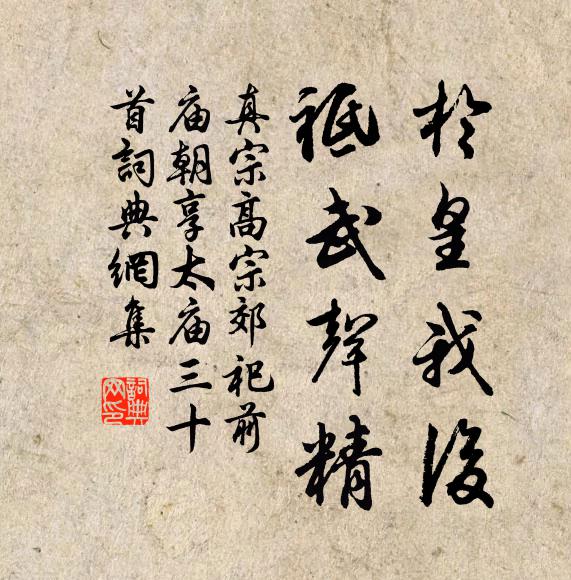 於皇我後
祗武聲精
真宗高宗郊祀前
庙朝享太庙三十
首詞典網集
詞典
网印